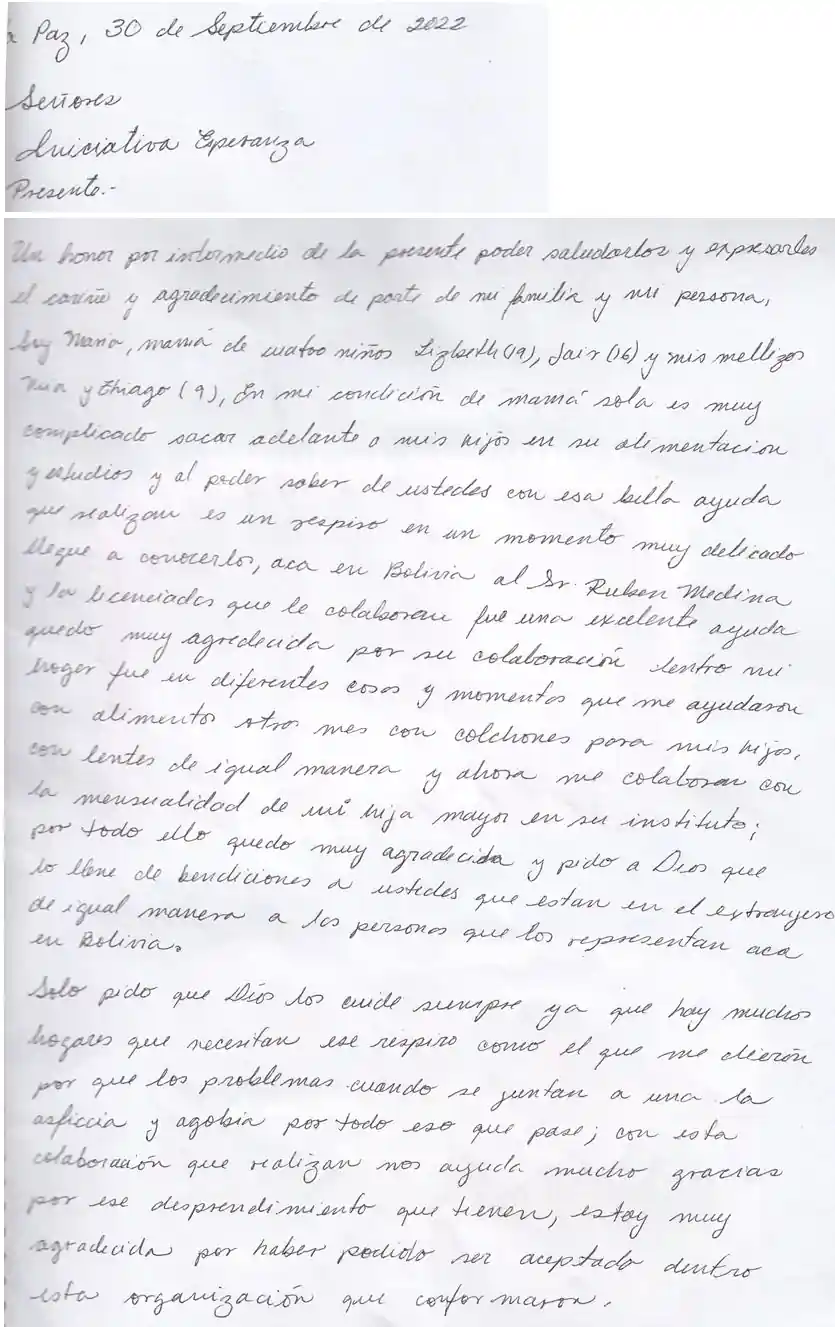 Paz, 30 de Septiembre de 2022
Señores
Iniciativa Esperanza
Presente.-
Un honor por intermedio de la presente poder saludarlos y expresarles
el cariño y agradecimiento de parte de mi familia y mi persona,
Soy Maria, mamá de cuatro niños Lizbeth (19), Jair (16) y mis mellizos
y Thiago (9), En mi condición de mamá sola es muy
complicado sacar adelante a mis hijos en su alimentacion
y estudios y al poder saber de ustedes con esa bella ayuda
que realizan es un respiro en un momento muy delicado
llegue a conocerlos, aca en Bolivia al Sr. Ruben Medina
y la licenciada que le colaboran fue una excelente ayuda
quedo muy agredecida por su colaboración dentro mi
hogar fue en diferentes cosas y momentos que me ayudaron
con alimentos otros mes con colchones para mis hijos,
con lentes de igual manera y ahora me colaboran con
la mensualidad de mi hija mayor en su instituto;
por todo ello quedo muy agradecida y pido a Dios que
lo llene de bendiciones a ustedes que estan en el extranjero
de igual manera a las personas que los representan aca
en Bolivia.
Solo pido que Dios los cuide siempre ya que hay muchos
hogares que necesitan ese respiro como el que me dieron
por que los problemas cuando se juntan a una la
asficcia y agobia por todo eso que pase; con esta
colaboración que realizan nos ayuda mucho gracias
por ese desprendimiento que tienen, estoy muy
agradecida por haber podido ser aceptada dentro
esta organización que conformaron.